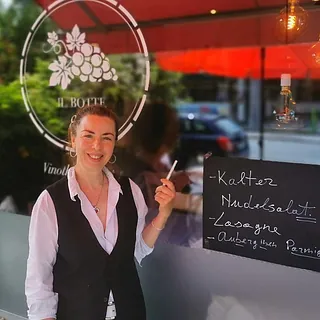 IL BOTTE
Vinoth
- Kalter
Nudelsalat.
- Lasagne
- Auberginen Parmi